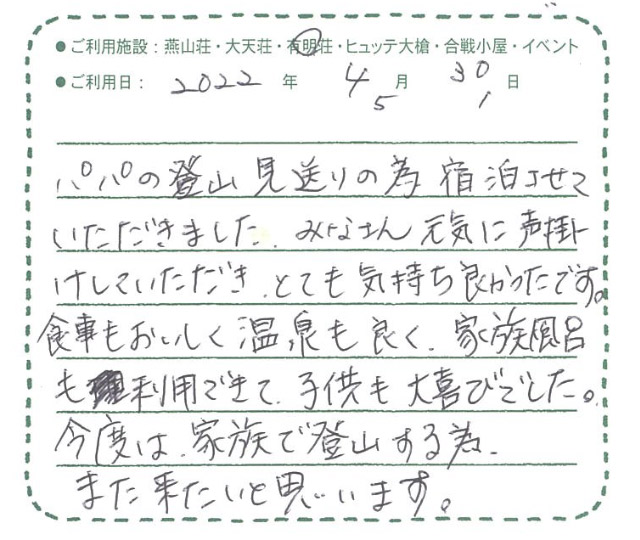 ●ご利用施設：燕山荘・大天荘・有明荘・ヒュッテ大槍・合戦小屋・イベント
●ご利用日： 2022 年 4 月 30 日
5 1
パパの登山見送りの為宿泊させて
いただきました。みなさん元気に声掛
けしていただき、とても気持ち良かったです。
食事もおいしく温泉も良く、家族風呂
も利用できて、子供も大喜びでした。
今度は、家族で登山する為、
また来たいと思います。